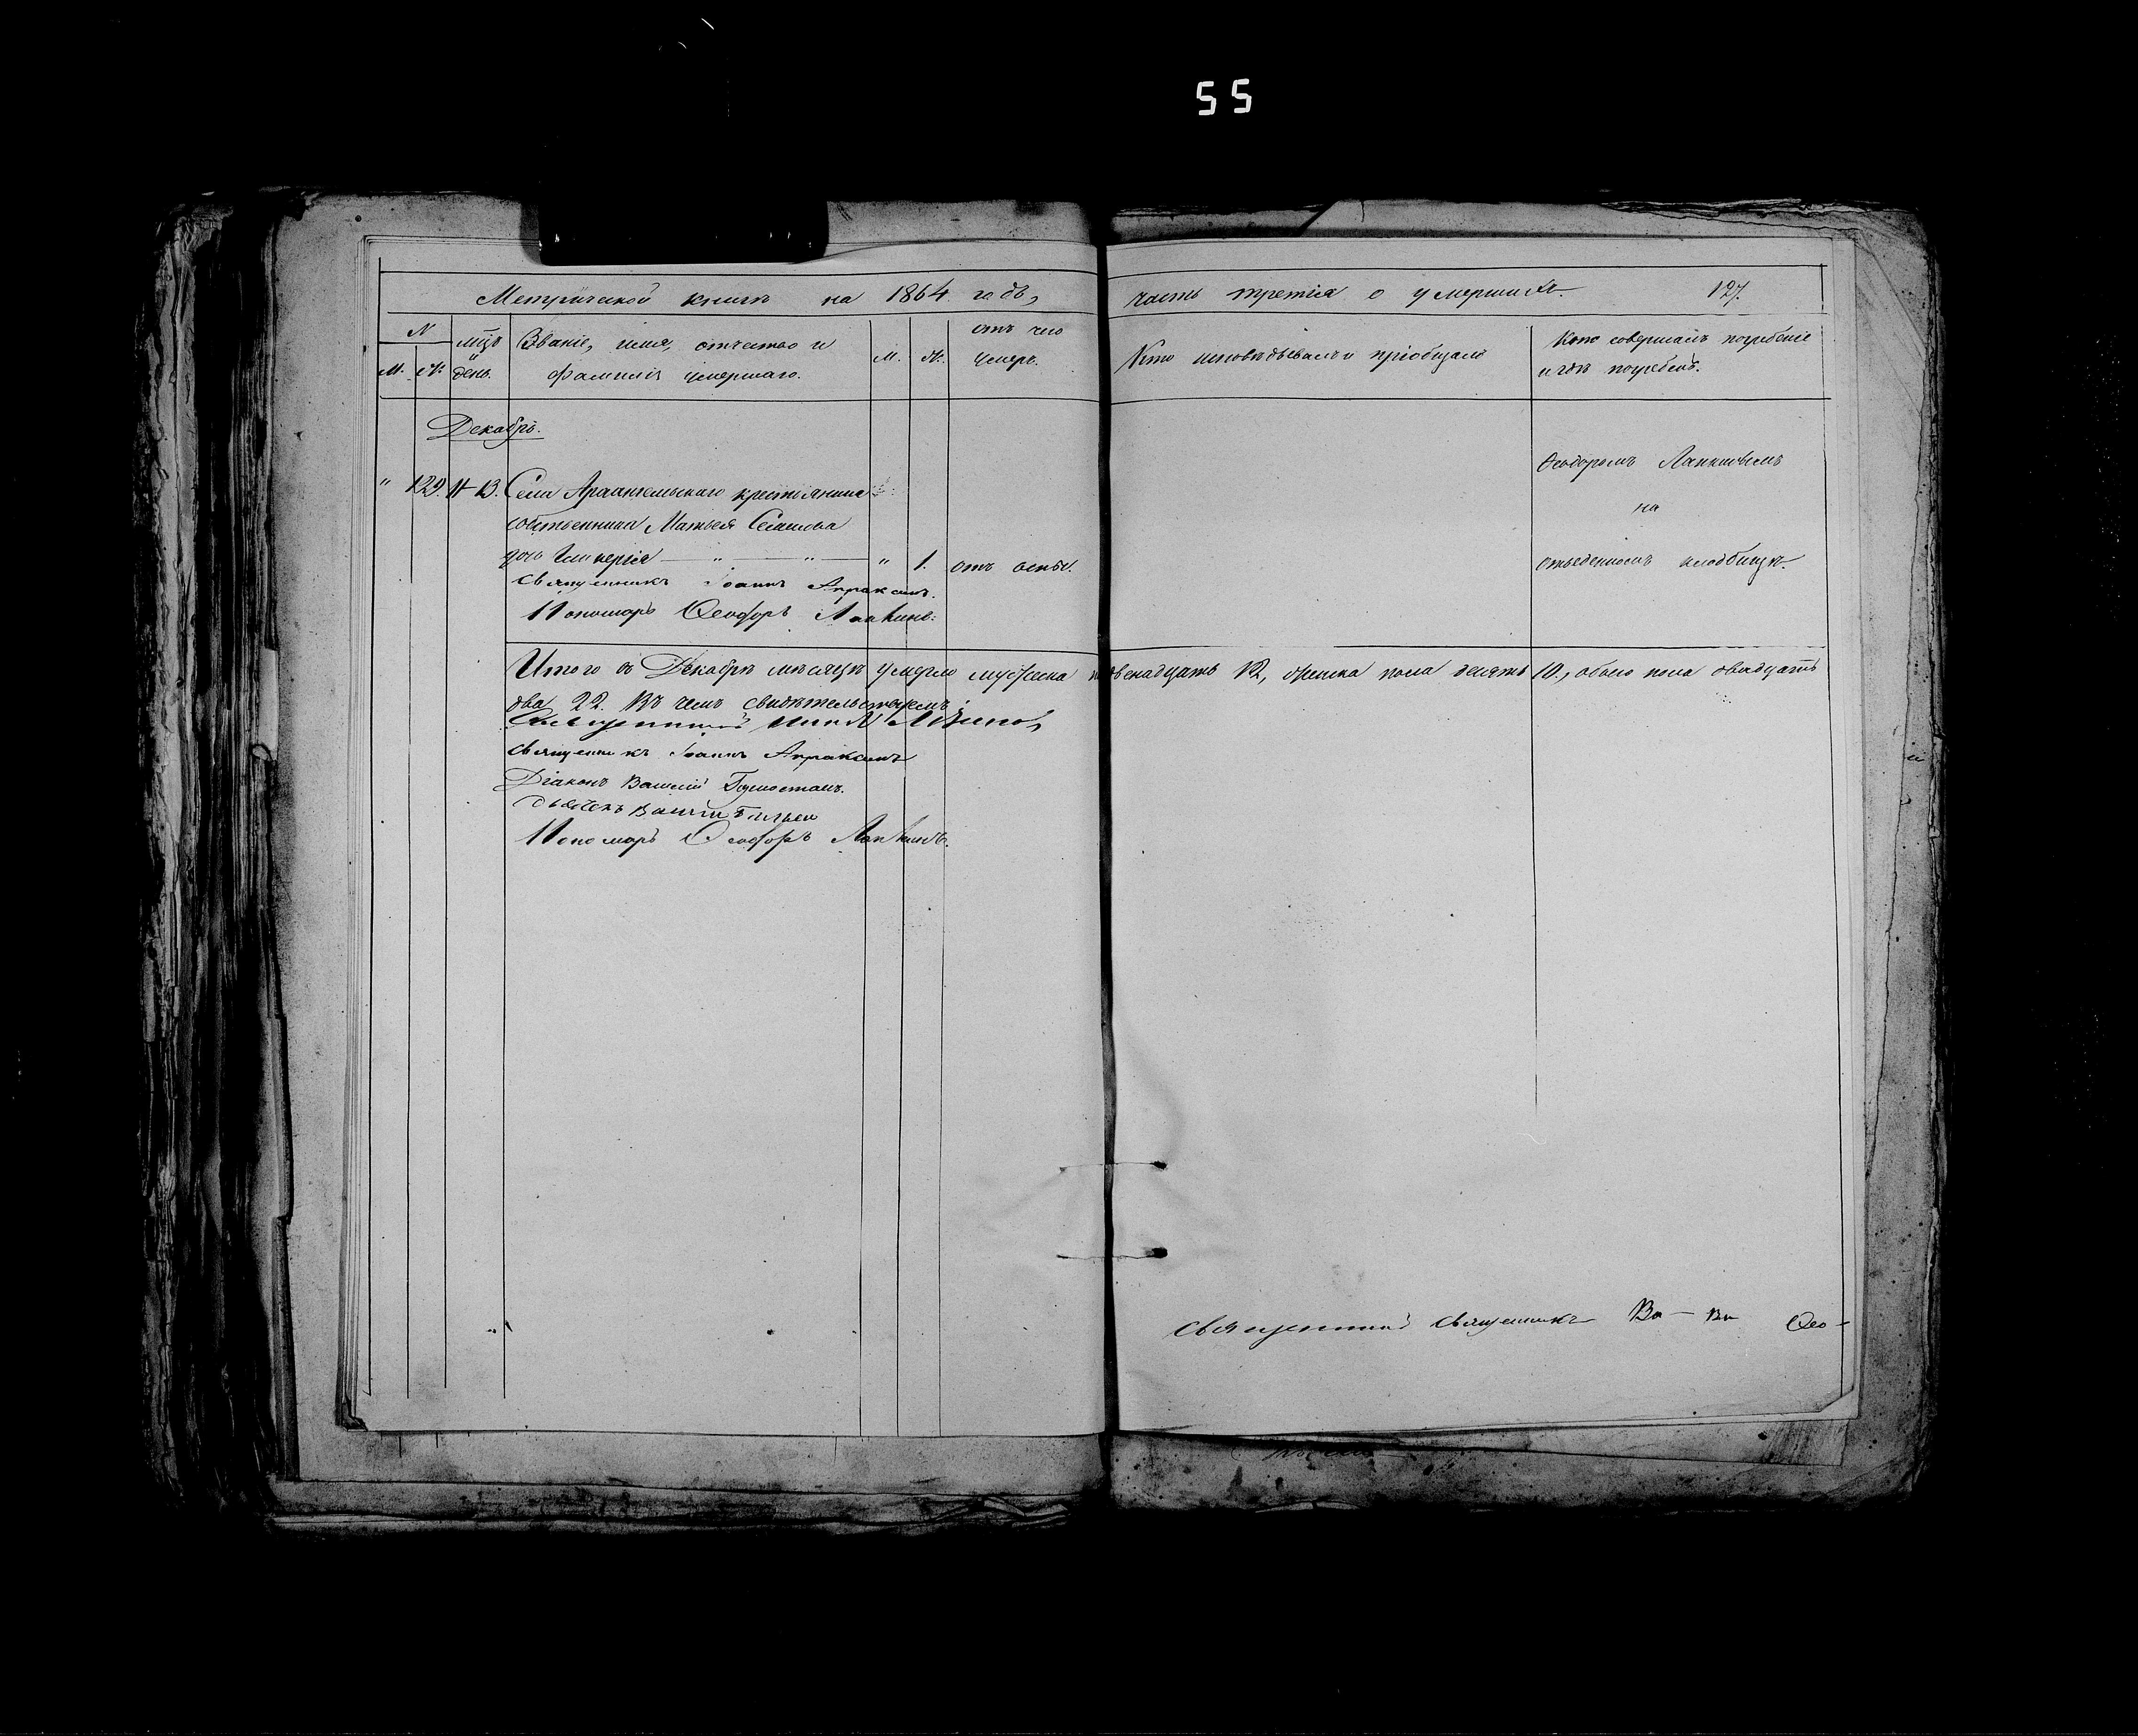 55
Метрической книги на 1864 годъ,
часть третія о умершихъ.
127.
N
М. Ж.
мцъ и день.
Званіе, имя, отчество и
фамилія умершаго.
М. Ж.
отъ чего
умеръ.
Кто исповѣдывалъ и пріобщалъ
Кто совершалъ погребеніе
и гдѣ погребенъ.
Декабрь.
" 129. 11 13. Села Архангельскаго крестьянина
собственника Матвея Семенова
дочь Гликерія — " — " — " 1. отъ оспы.
Священникъ Іоаннъ Апраксинъ.
Пономарь Ѳеодоръ Лапкинъ.
Ѳеодоромъ Лапкинымъ
на
отведенномъ кладбищѣ.
Итого въ Декабрѣ мѣсяцѣ умерло мужеска п. двенадцать 12, женска пола десять 10., обоего пола двадцать
два 22. Въ чемъ свидѣтельствуемъ:
Священникъ Іоаннъ Апраксинъ
Діаконъ Василій
Дьячекъ Василій
Пономарь Ѳеодоръ Лапкинъ.
Священникъ Ва — Ва Ѳео-